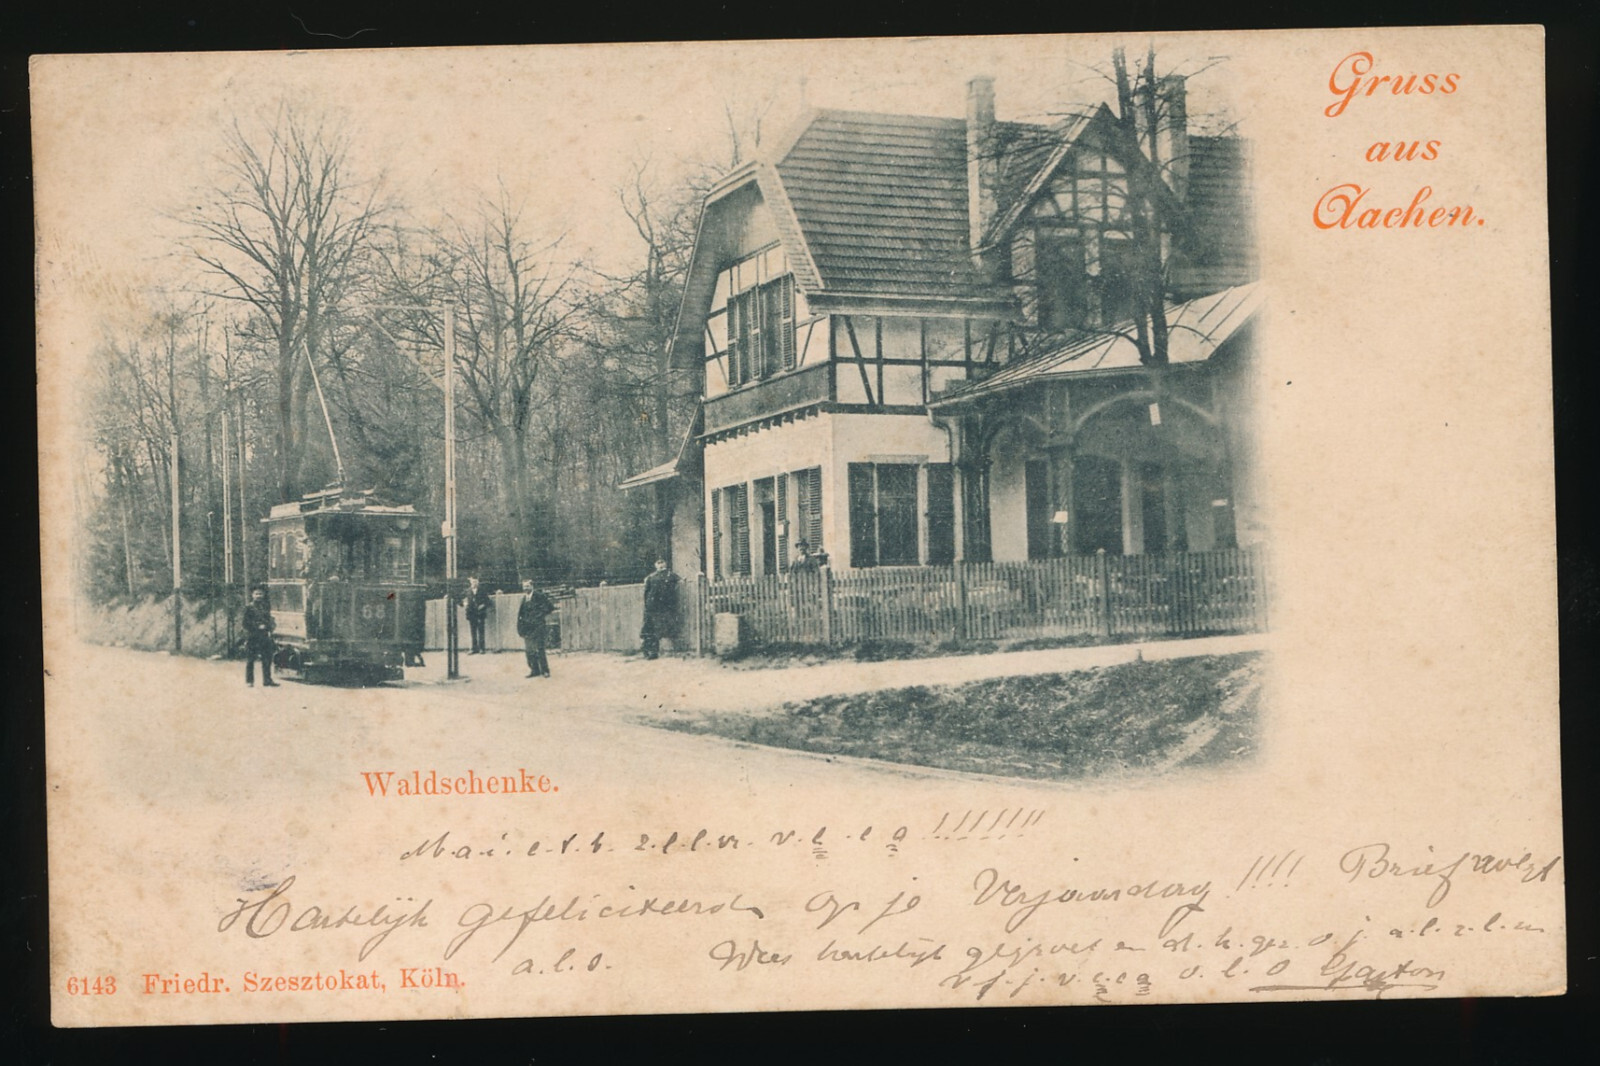 Gruss
aus
Aachen.
68
Waldschenke.
M.a.i. e.t.b. z.l.l.v. v.l.e a !!!!!!!
Hartelijk gefeliciteerd op je Verjaardag !!!! Brief volgt
a.l.s. Wees hartelijk en d.h.gez. o. j. a.l.z.l.m
v f. j. v. o. l. o Gaston
6143 Friedr. Szesztokat, Köln.